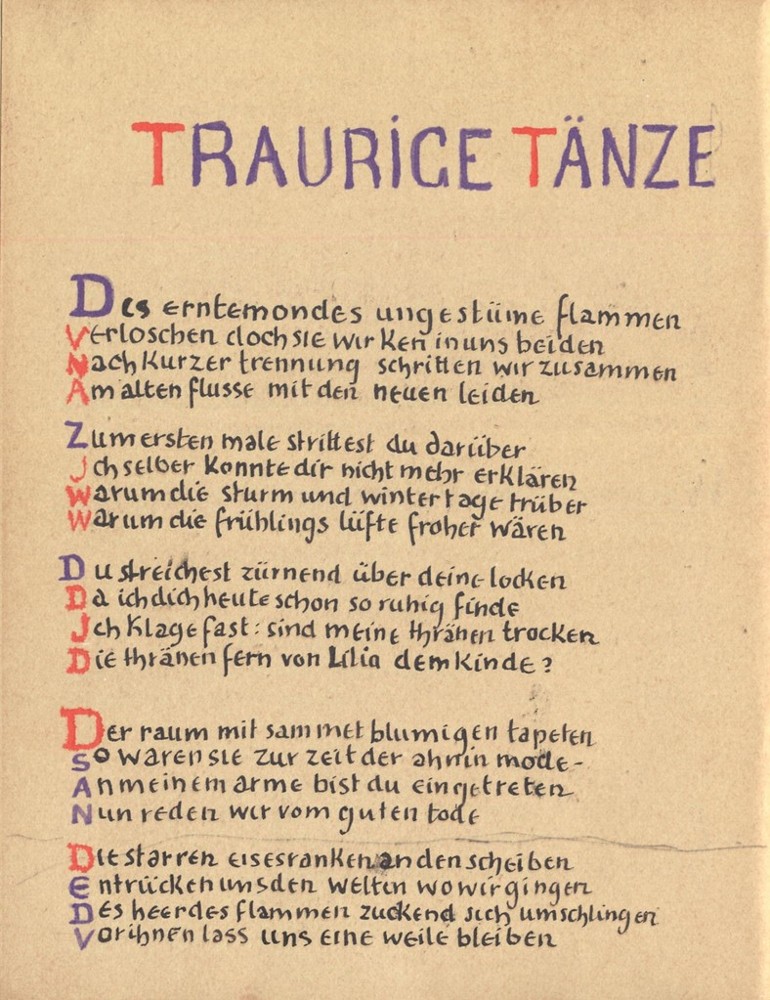 TRAURIGE TÄNZE
Des erntemondes ungestüme flammen
Verloschen doch sie wirken in uns beiden
Nach kurzer trennung schritten wir zusammen
Am alten flusse mit den neuen leiden
Zum ersten male strittest du darüber
Ich selber konnte dir nicht mehr erklären
Warum die sturm und wintertage trüber
Warum die frühlings lüfte froher wären
Du streichest zürnend über deine locken
Da ich dich heute schon so ruhig finde
Ich klage fast: sind meine thränen trocken
Die thränen fern von Lilia dem kinde?
Der raum mit sammetblumigen tapeten
So waren sie zur zeit der ahnin mode-
An meinem arme bist du eingetreten
Nun reden wir vom guten tode
Die starren eisesranken an den scheiben
Entrücken uns den welten wo wir gingen
Des heerdes flammen zuckend sich umschlingen
Vor ihnen lass uns eine weile bleiben